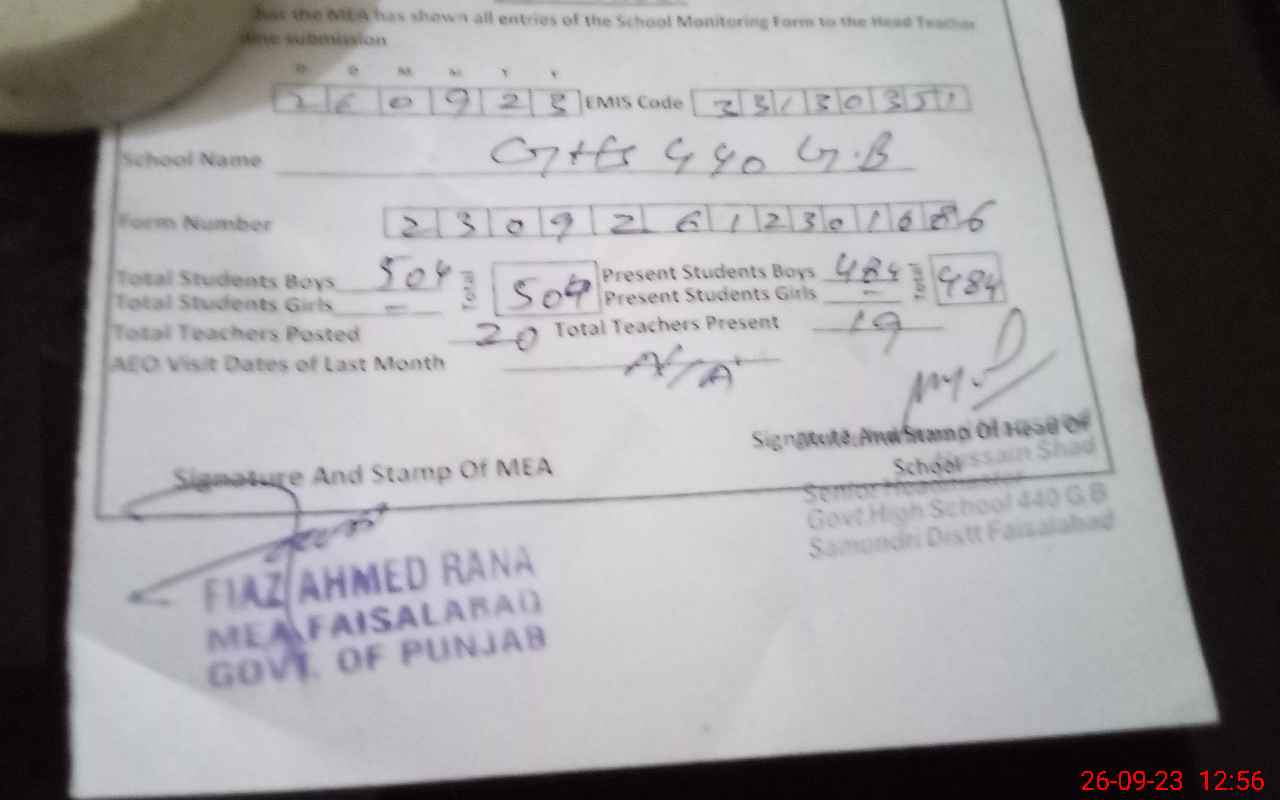 has the MEA has shown all entries of the School Monitoring Form to the Head Teacher
submission
D D M M Y Y
260923 EMIS Code 33130351
School Name GHS 440 G.B
Form Number 2309261230168 6
Total Students Boys 504 Total 504 Present Students Boys 484 Total 484
Total Students Girls – Present Students Girls –
Total Teachers Posted 20 Total Teachers Present 19
AEO Visit Dates of Last Month N/A
Signature And Stamp Of Head Of
School
Signature And Stamp Of MEA
Hussain Shad
Senior Headmaster
Govt High School 440 G B
Samundri Distt Faisalabad
FIAZ AHMED RANA
MEA FAISALABAD
GOVT. OF PUNJAB
26-09-23 12:56